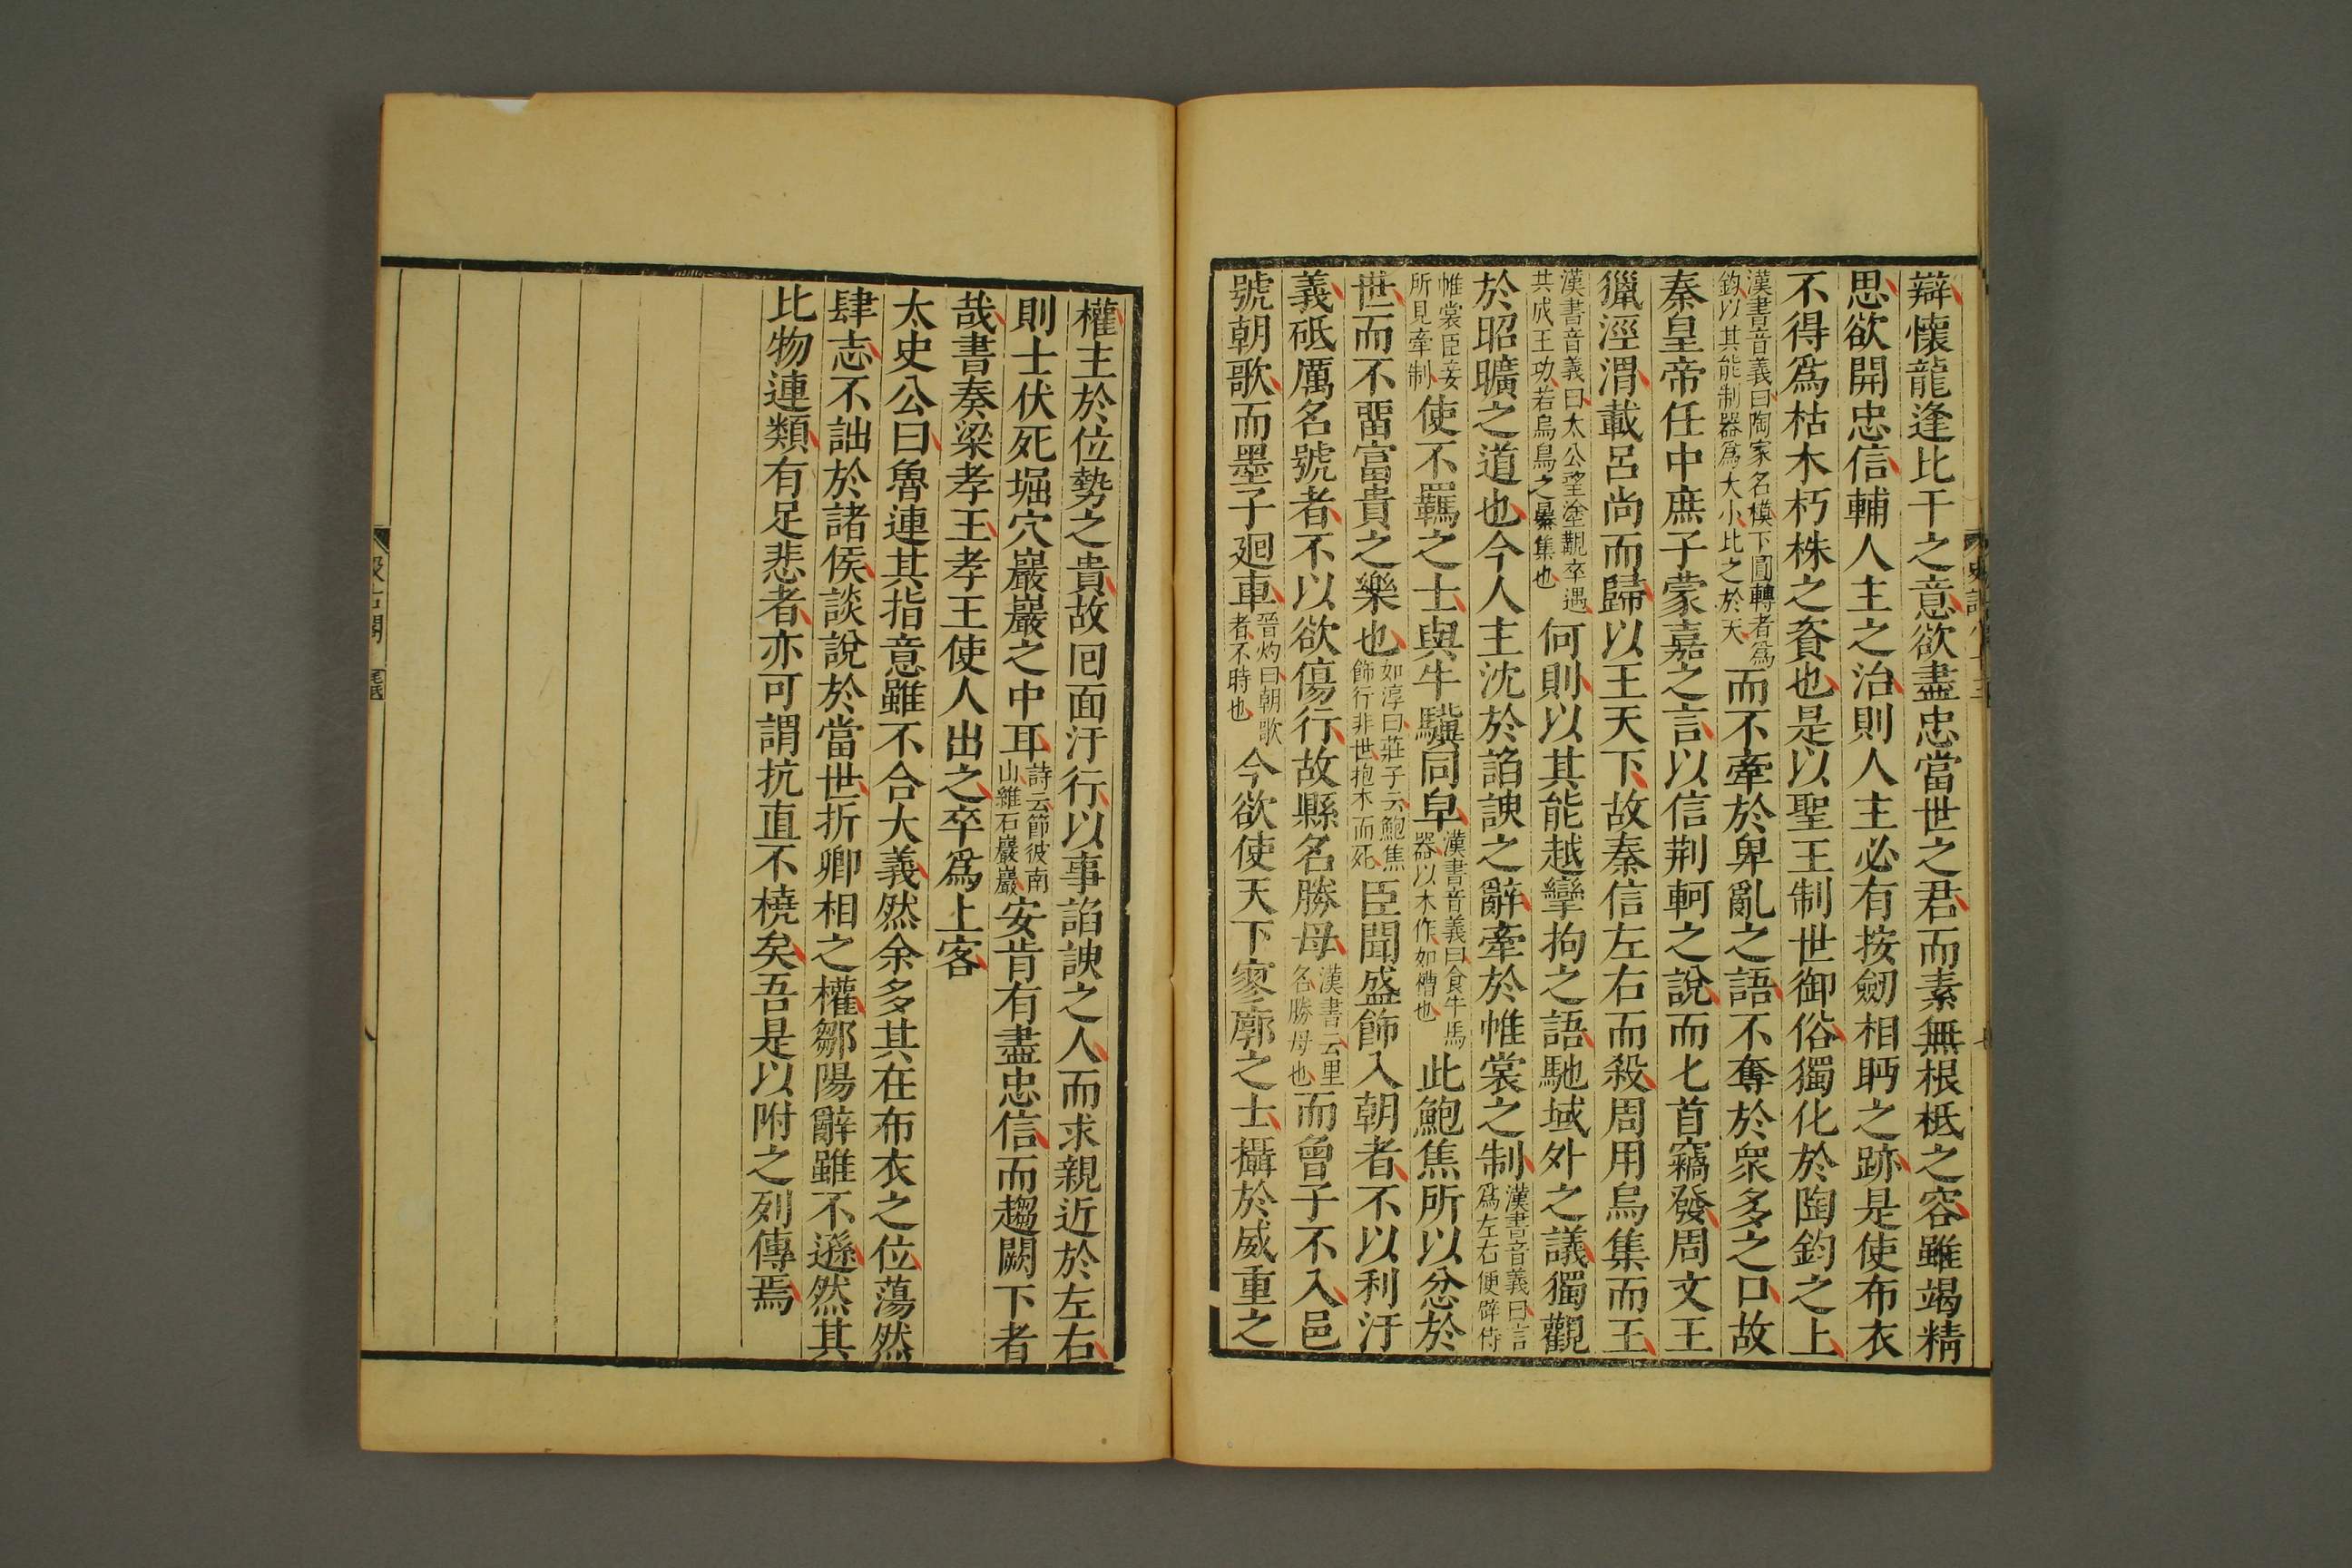 辯懷龍逢比干之意欲盡忠當世之君而素無根柢之容雖竭精
思欲開忠信輔人主之治則人主必有按劒相眄之跡是使布衣
不得爲枯木朽株之資也是以聖王制世御俗獨化於陶鈞之上
漢書音義曰陶家名模下圓轉者爲鈞以其能制器爲大小比之於天而不牽於卑亂之語不奪於衆多之口故
秦皇帝任中庶子蒙嘉之言以信荆軻之說而匕首竊發周文王
獵涇渭載呂尚而歸以王天下故秦信左右而殺周用烏集而王
漢書音義曰太公望塗覯卒遇共成王功若烏鳥之暴集也何則以其能越攣拘之語馳域外之議獨觀
於昭曠之道也今人主沈於諂諛之辭牽於帷裳之制漢書音義曰言爲左右便辟侍
帷裳臣妾所見牽制使不羈之士與牛驥同皁漢書音義曰食牛馬器以木作如槽也此鮑焦所以忿於
世而不畱富貴之樂也如淳曰莊子云鮑焦飾行非世抱木而死臣聞盛飾入朝者不以利汙
義砥厲名號者不以欲傷行故縣名勝母漢書云里名勝母也而曾子不入邑
號朝歌而墨子廻車晉灼曰朝歌者不時也今欲使天下寥廓之士攝於威重之
權主於位勢之貴故囘面汙行以事諂諛之人而求親近於左右
則士伏死堀穴巖巖之中耳詩云節彼南山維石巖巖安肯有盡忠信而趨闕下者
哉書奏梁孝王孝王使人出之卒爲上客
太史公曰魯連其指意雖不合大義然余多其在布衣之位蕩然
肆志不詘於諸侯談說於當世折卿相之權鄒陽辭雖不遜然其
比物連類有足悲者亦可謂抗直不橈矣吾是以附之列傳焉